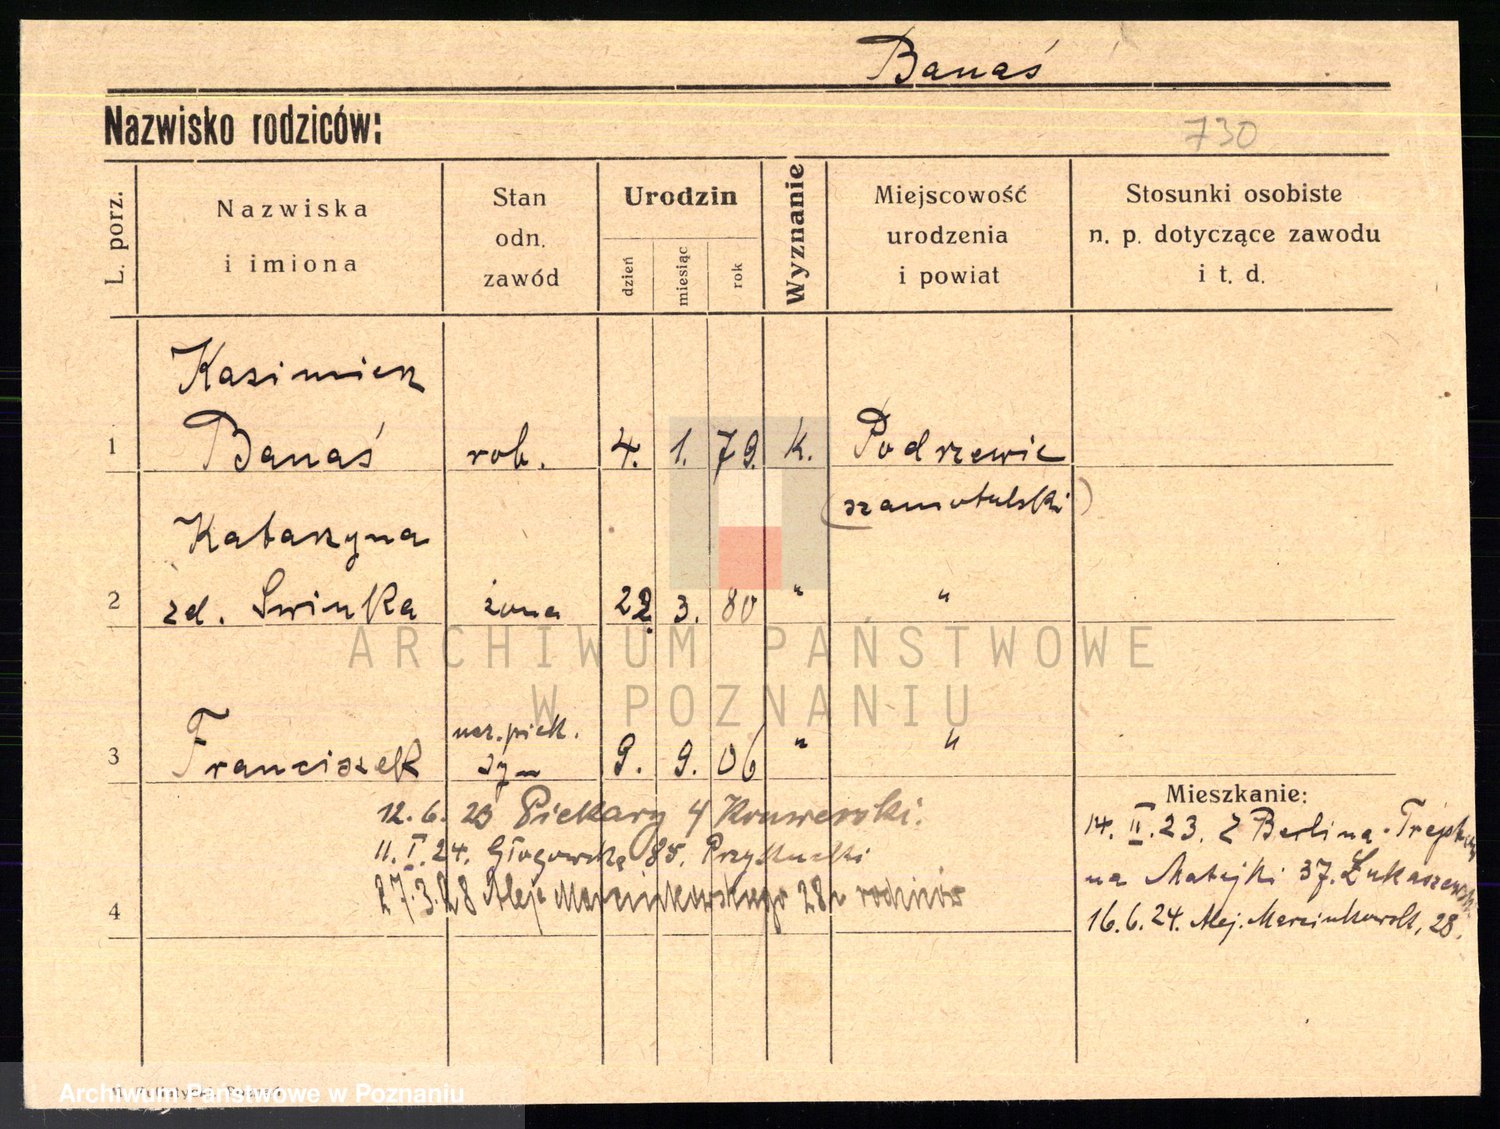 Banaś
Nazwisko rodziców:
730
L. porz.
Nazwiska
i imiona
Stan
odn.
zawód
Urodzin
dzień
miesiąc
rok
Wyznanie
Miejscowość
urodzenia
i powiat
Stosunki osobiste
n. p. dotyczące zawodu
i t. d.
Kasimierz
1 Banaś rob. 4. 1. 79. k. Podrzewie
(szamotulski)
Katarzyna
2 zd. Swinka żona 22. 3. 80 " "
ucz. piek.
3 Franciszek syn 9. 9. 06 " "
Mieszkanie:
12. 6. 23 Piekary 4
11. I. 24. Głogowska 85.
27.3.28 Aleje Marcinkowskiego 28 u rodziców
4
14. II. 23. Z Berlina
na Matejki 37.
16. 6. 24. Alej. Marcinkowsk. 28.
ARCHIWUM PAŃSTWOWE
W POZNANIU
Archiwum Państwowe w Poznaniu